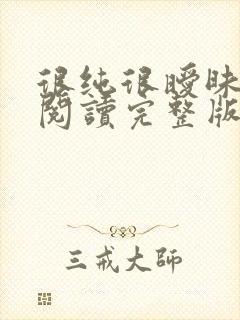 很纯很曖昧
閱讀完整版
三戒大师